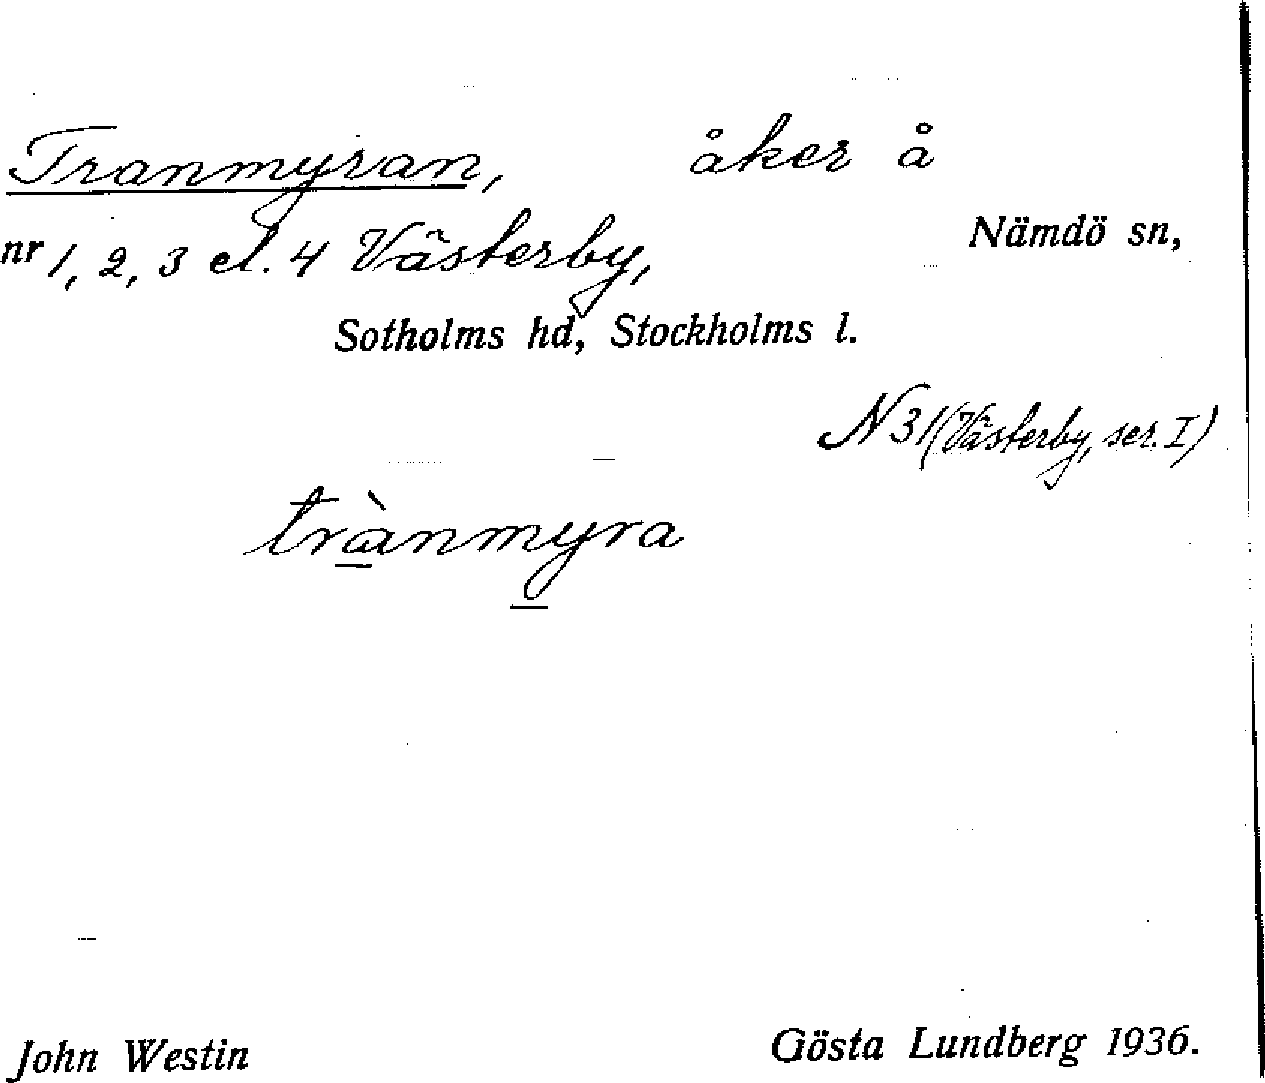 Tranmyran, åker å
nr 1, 2, 3 el. 4 Västerby, Nämdö sn,
Sotholms hd, Stockholms l.
N 31 (Västerby, ser. I)
trànmyra
John Westin Gösta Lundberg 1936.